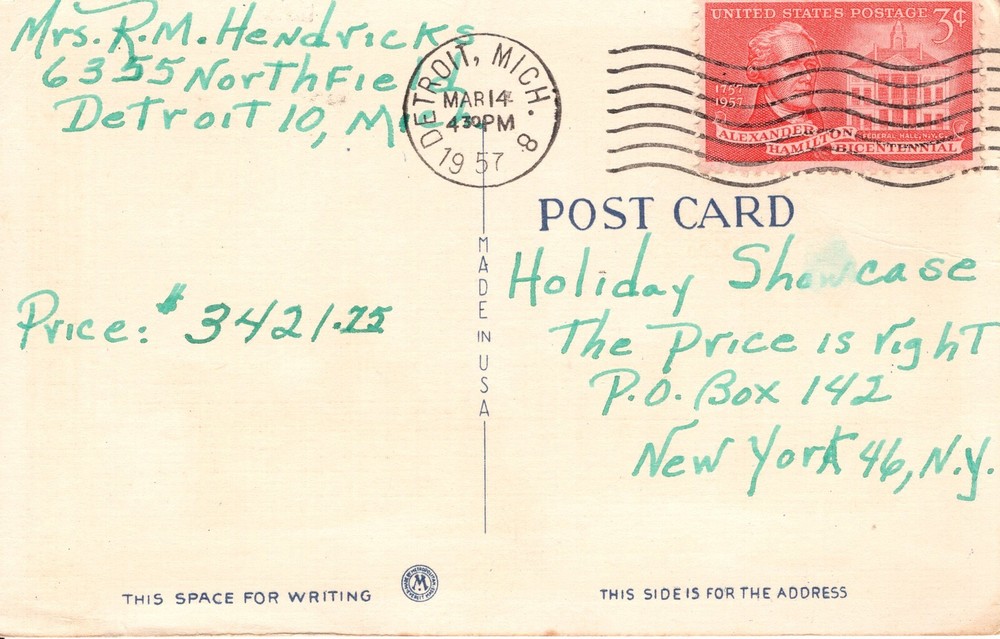 Mrs. R.M. Hendricks
6355 Northfield
Detroit 10, Mich.
DETROIT, MICH. 8
MAR 14
4 30 PM
1957
UNITED STATES POSTAGE 3¢
1757
1957
ALEXANDER HAMILTON BICENTENNIAL
FEDERAL HALL, N.Y.C.
POST CARD
Price: $3421.75
MADE IN USA
Holiday Showcase
The Price is right
P.O. Box 142
New York 46, N.Y.
THIS SPACE FOR WRITING
M
THIS SIDE IS FOR THE ADDRESS